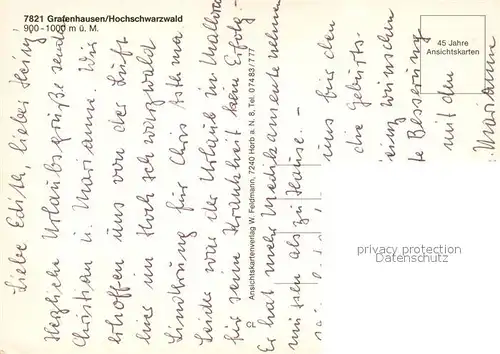 7821 Grafenhausen/Hochschwarzwald
900 - 1000 m ü. M.
45 Jahre
Ansichtskarten
Liebe Edith, lieber
Herzliche Urlaubsgrüße
Christian u. Mariann. Wir
erhoffen uns von der Luft
hier im Hochschwarzwald
Linderung für Chris Asthma
Leider war der Urlaub in
für seine Krankheit kein Erfolg.
Er hat mehr Medikamente nehmen
müssen als zu Hause. –
uns für den
die Geburts-
wünschen
te Besserung
mit den
Mariann
Ansichtskartenverlag W. Feldmann, 7240 Horb a. N. 8, Tel. 07483/777
privacy protection
Datenschutz